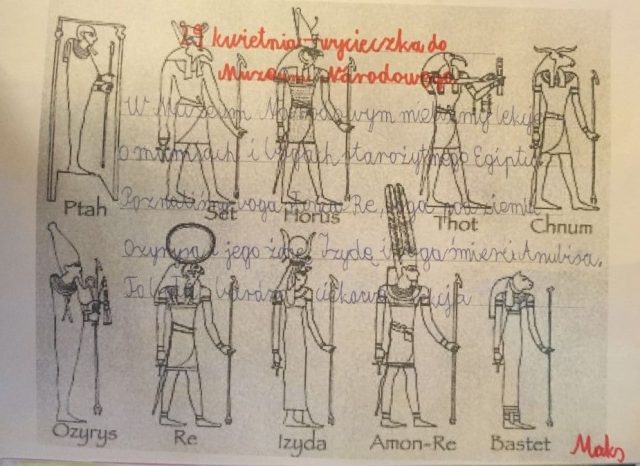 29 kwietnia wycieczka do
Muzeum Narodowego
W Muzeum Narodowym mieliśmy lekcję
o mumiach i bogach starożytnego Egiptu.
Poznaliśmy boga słońca Re, boga podziemia
Ozyrysa i jego żonę Izydę i boga śmierci Anubisa.
To była bardzo ciekawa lekcja
Ptah Set Horus Thot Chnum
Ozyrys Re Izyda Amon-Re Bastet
Maks